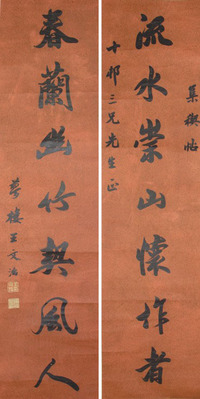 集禊帖
流水崇山懷作者
十邨三兄先生正
春蘭幽竹契風人
夢樓王文治